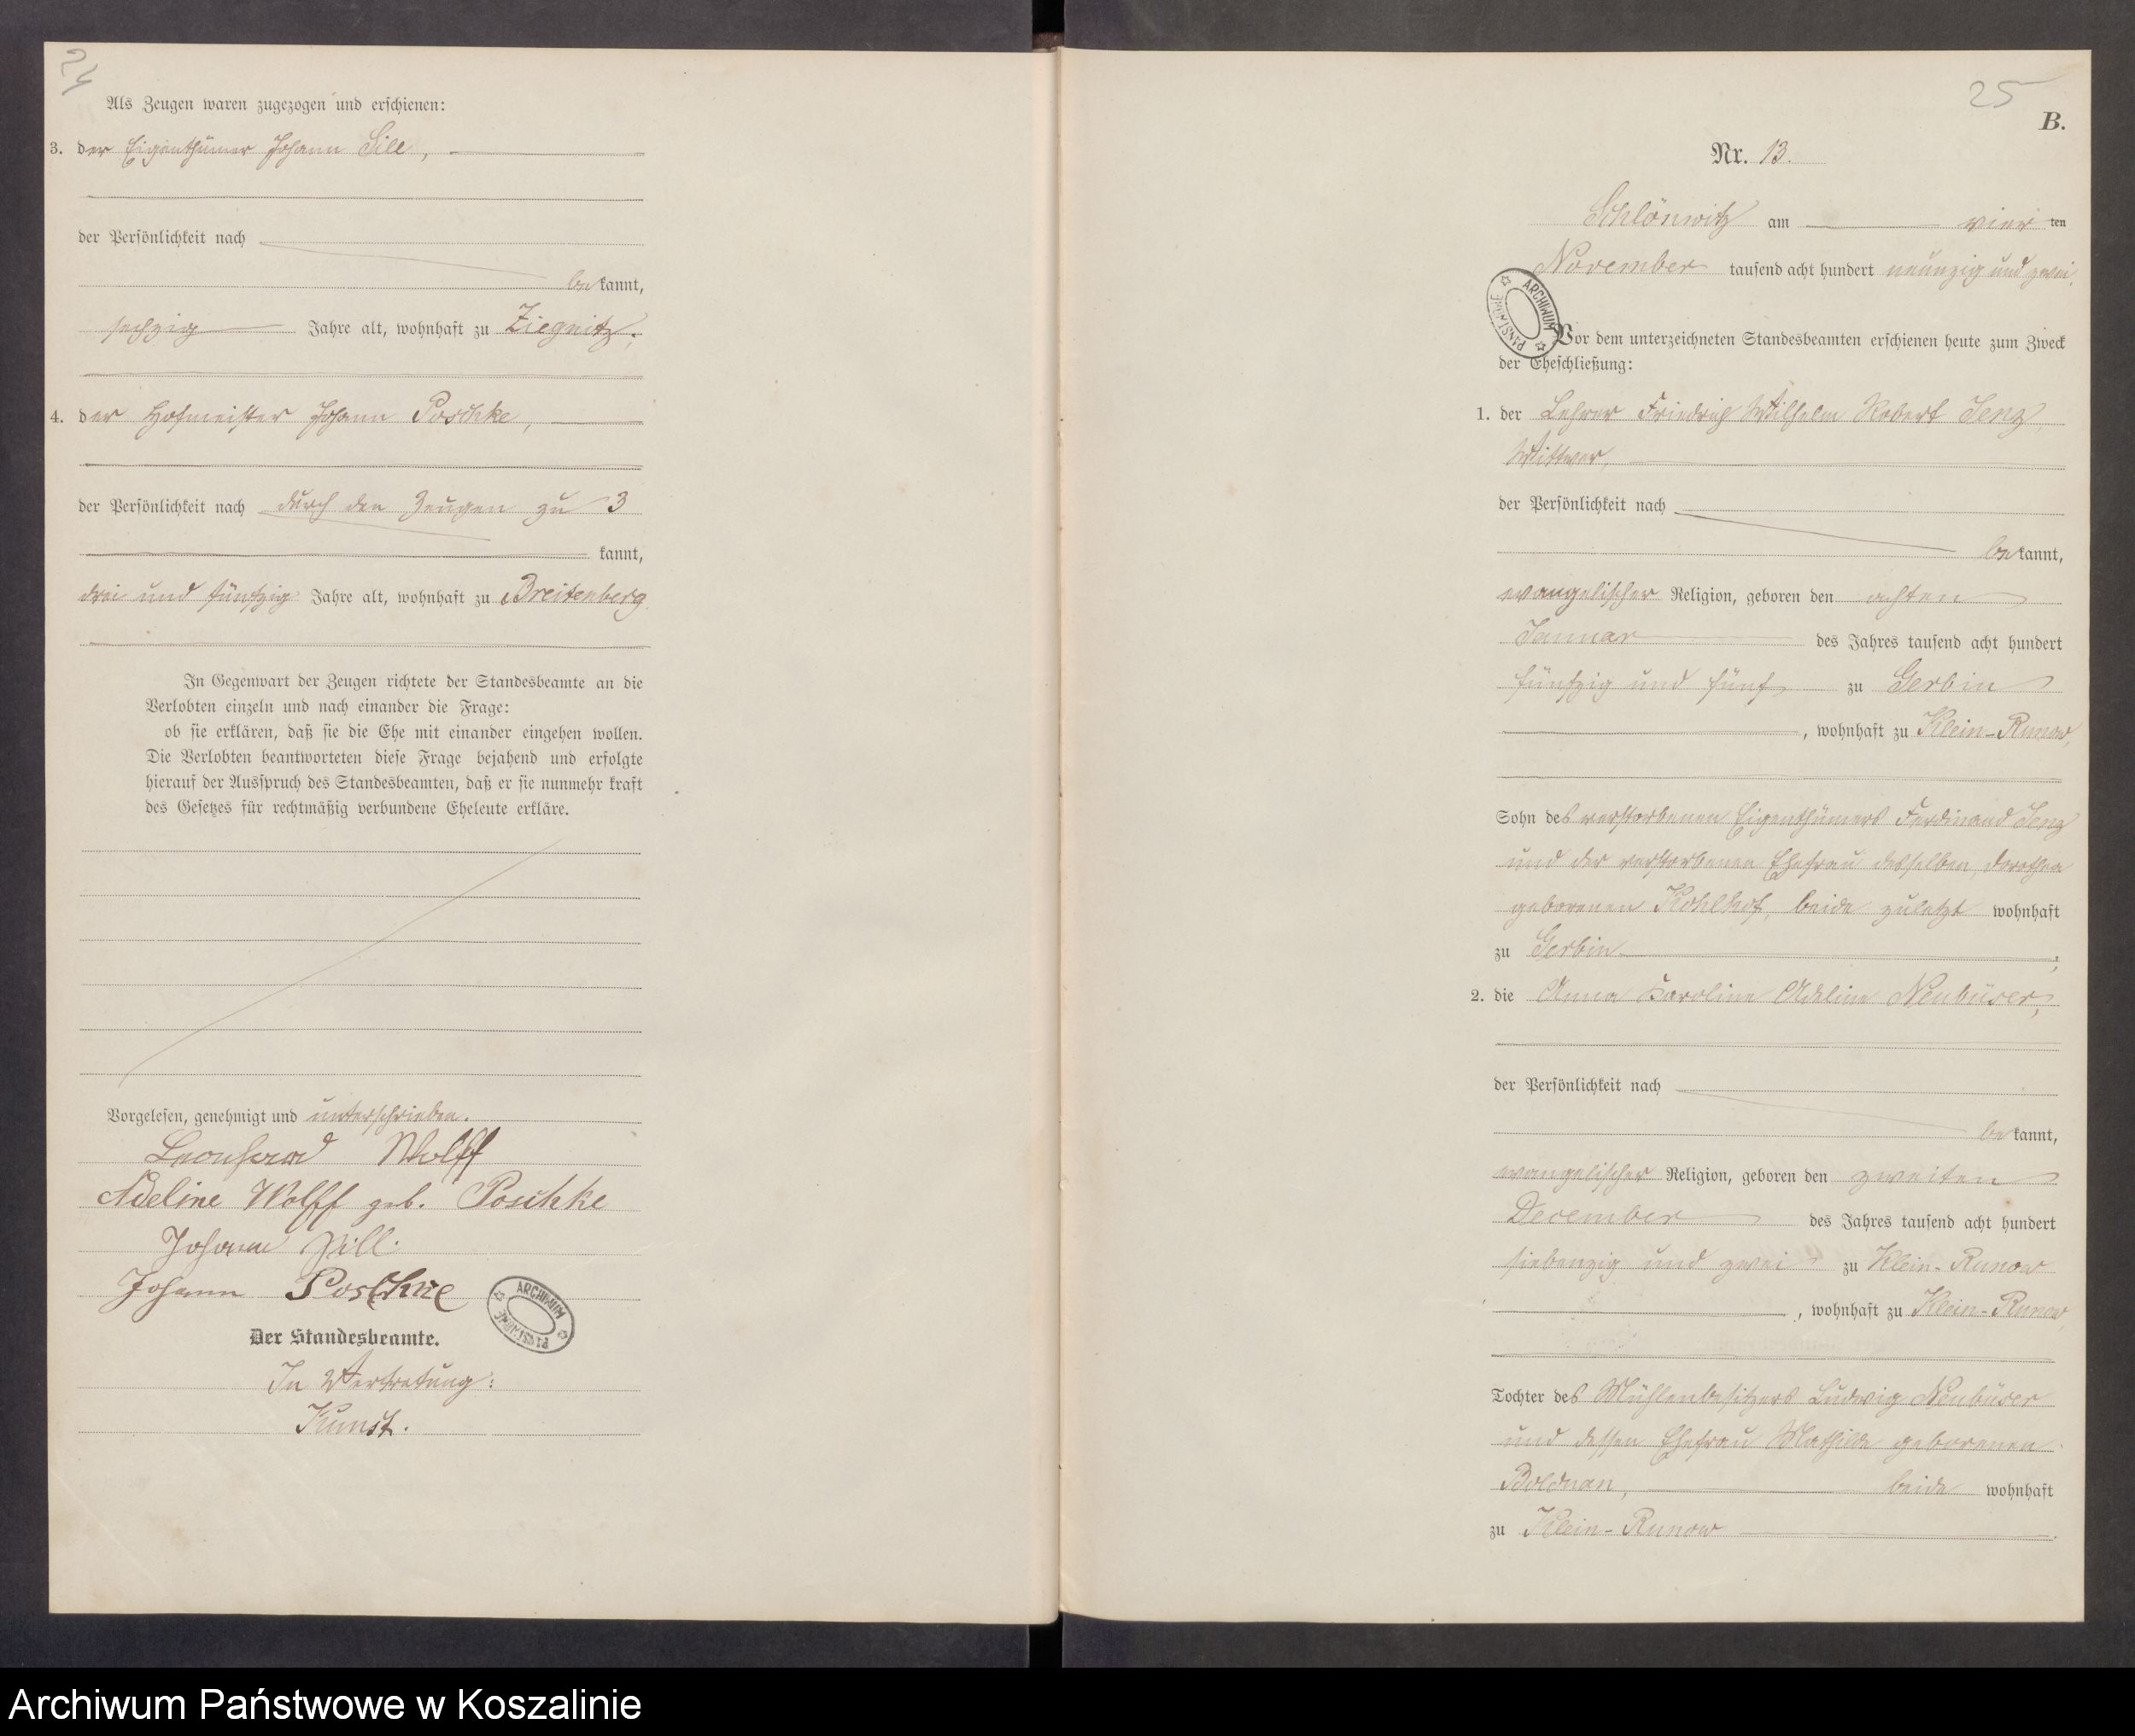 24
Als Zeugen waren zugezogen und erschienen:
3. der Eigenthümer Johann Sill,
der Persönlichkeit nach
bekannt,
sechzig Jahre alt, wohnhaft zu Ziegnitz,
4. der Hofmeister Johann Poschke,
der Persönlichkeit nach durch den Zeugen zu 3
kannt,
drei und fünfzig Jahre alt, wohnhaft zu Breitenberg.
In Gegenwart der Zeugen richtete der Standesbeamte an die
Verlobten einzeln und nach einander die Frage:
ob sie erklären, daß sie die Ehe mit einander eingehen wollen.
Die Verlobten beantworteten diese Frage bejahend und erfolgte
hierauf der Ausspruch des Standesbeamten, daß er sie nunmehr kraft
des Gesetzes für rechtmäßig verbundene Eheleute erkläre.
Vorgelesen, genehmigt und unterschrieben.
Leonhard Wolff
Adeline Wolff geb. Poschke
Johann Sill.
Johann Poschke
ARCHIWUM PAŃSTWOWE
Der Standesbeamte.
In Vertretung:
Kunst.
25
B.
Nr. 13.
Schlönwitz am vierten
November tausend acht hundert neunzig und zwei.
ARCHIWUM PAŃSTWOWE
Vor dem unterzeichneten Standesbeamten erschienen heute zum Zweck
der Eheschließung:
1. der Lehrer Friedrich Wilhelm Robert Jenz,
Wittwer,
der Persönlichkeit nach
bekannt,
evangelischer Religion, geboren den achten
Januar des Jahres tausend acht hundert
fünfzig und fünf zu Gerbin
, wohnhaft zu Klein-Runow,
Sohn des verstorbenen Eigenthümers Ferdinand Jenz
und der verstorbenen Ehefrau desselben, Dorothea
geborenen Kohlhof, beide zuletzt wohnhaft
zu Gerbin;
2. die Anna Karoline Adeline Neubüser,
der Persönlichkeit nach
bekannt,
evangelischer Religion, geboren den zweiten
December des Jahres tausend acht hundert
siebenzig und zwei zu Klein-Runow
, wohnhaft zu Klein-Runow,
Tochter des Mühlenbesitzers Ludwig Neubüser
und dessen Ehefrau Mathilde geborenen
Boldnan, beide wohnhaft
zu Klein-Runow.
Archiwum Państwowe w Koszalinie